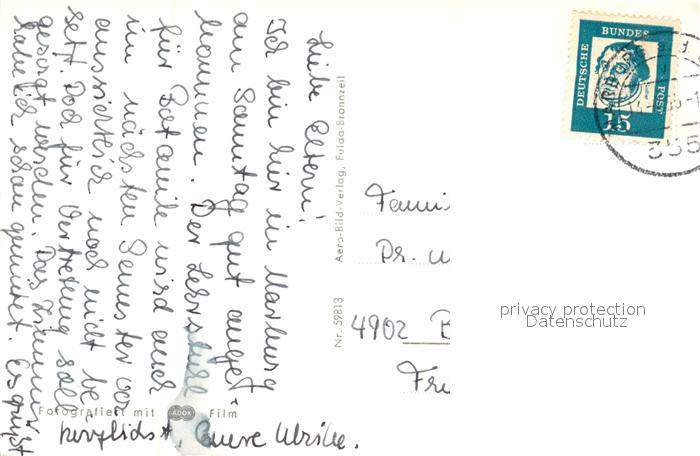 Liebe Eltern!
Ich bin hier in Marburg
am Sonntag gut ange-
kommen. Der Lehrstuhl
für Botanik wird auch
im nächsten Semester vor
aussichtlich noch nicht be
setzt. Doch für Vertretung soll
gesorgt werden. Das Zimmer
habe ich schon gemietet. Es grüßt
herzlichst, Eure Ulrike.
Fotografiert mit ADOX Film
Nr. 59813 Aero-Bild-Verlag, Fulda-Bronnzell
DEUTSCHE BUNDESPOST
15
355
Dr.
4902
privacy protection
Datenschutz